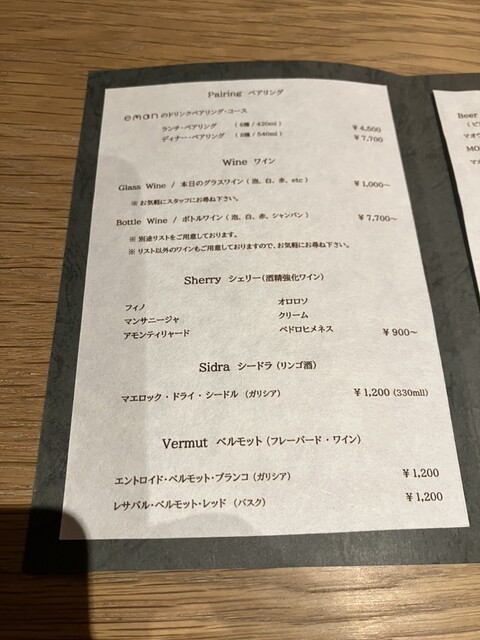 Pairing ペアリング
emanのドリンクペアリング・コース
ランチ・ペアリング （6種 / 420ml） ¥4,500
ディナー・ペアリング （8種 / 540ml） ¥7,700
Wine ワイン
Glass Wine / 本日のグラスワイン（泡、白、赤、etc） ¥1,000～
※ お気軽にスタッフにお尋ね下さい。
Bottle Wine / ボトルワイン（泡、白、赤、シャンパン） ¥7,700～
※ 別途リストをご用意しております。
※ リスト以外のワインもご用意しておりますので、お気軽にお尋ね下さい。
Sherry シェリー（酒精強化ワイン）
フィノ オロロソ
マンサニージャ クリーム
アモンティリャード ペドロヒメネス ¥900～
Sidra シードラ（リンゴ酒）
マエロック・ドライ・シードル（ガリシア） ¥1,200（330mll）
Vermut ベルモット（フレーバード・ワイン）
エントロイド・ベルモット・ブランコ（ガリシア） ¥1,200
レサバル・ベルモット・レッド（バスク） ¥1,200
Beer
マオウ
MO
マ